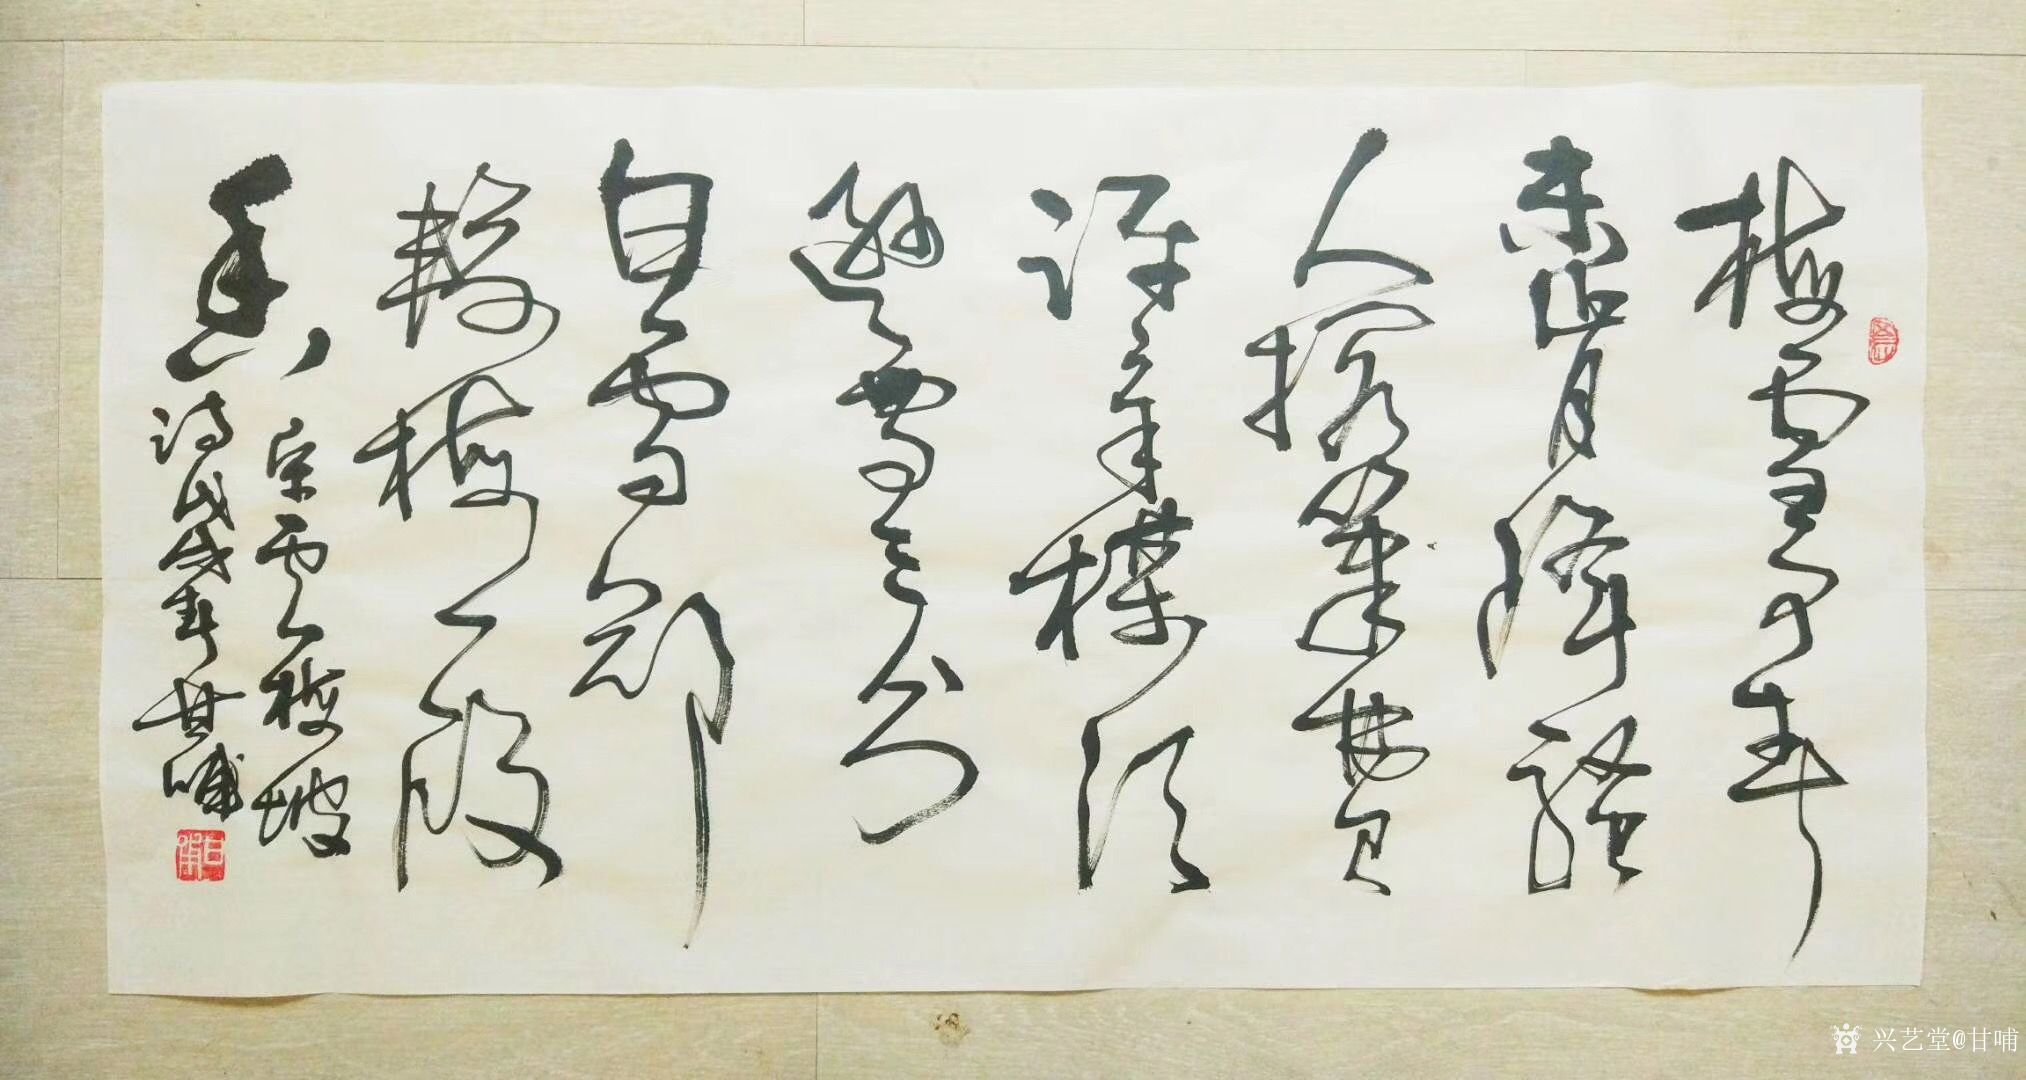 梅雪争春
未肯降骚
人搁筆费
评章楳须
逊雪三分
白雪郤
輸梅一段
香
宋卢梅坡
诗戊戌春甘哺
甘哺
兴艺堂@甘哺